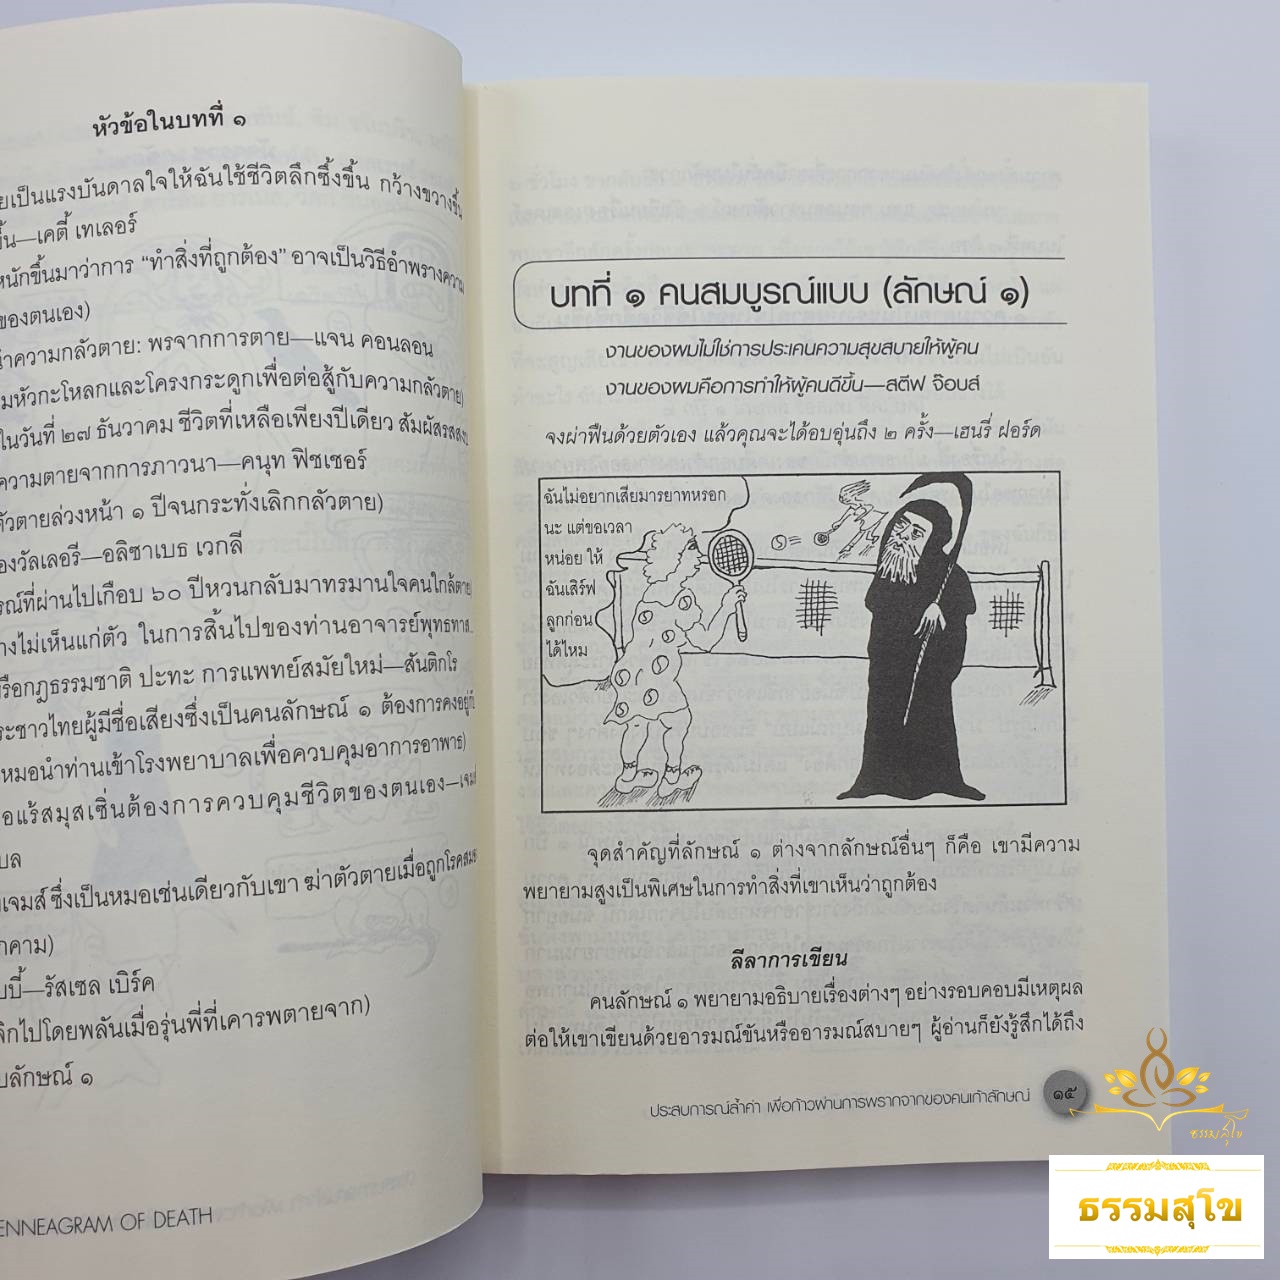 หัวข้อในบทที่ ๑
ยเป็นแรงบันดาลใจให้ฉันใช้ชีวิตลึกซึ้งขึ้น กว้างขวางขึ้น
ขึ้น—เคตี้ เทเลอร์
หนักขึ้นมาว่าการ “ทำสิ่งที่ถูกต้อง” อาจเป็นวิธีอำพรางความ
ของตนเอง)
ความกลัวตาย: พรจากการตาย—แจน คอนลอน
มหัวกะโหลกและโครงกระดูกเพื่อต่อสู้กับความกลัวตาย)
ในวันที่ ๒๗ ธันวาคม ชีวิตที่เหลือเพียงปีเดียว สัมผัสรสสงบ
ความตายจากการภาวนา—คนุท ฟิชเชอร์
ตัวตายล่วงหน้า ๑ ปีจนกระทั่งเลิกกลัวตาย)
องวัลเลอรี—อลิซาเบธ เวกลี
รณ์ที่ผ่านไปเกือบ ๖๐ ปีหวนกลับมาทรมานใจคนใกล้ตาย)
างไม่เห็นแก่ตัว ในการสิ้นไปของท่านอาจารย์พุทธทาส
รือกฎธรรมชาติ ปะทะ การแพทย์สมัยใหม่—สันติกโร
ระชาวไทยผู้มีชื่อเสียงซึ่งเป็นคนลักษณ์ ๑ ต้องการคงอยู่กับ
หมอนำท่านเข้าโรงพยาบาลเพื่อควบคุมอาการอาพาธ)
อแร้สมุสเซิ่นต้องการควบคุมชีวิตของตนเอง—เจมส์
เบล
เจมส์ ซึ่งเป็นหมอเช่นเดียวกับเขา ฆ่าตัวตายเมื่อถูกโรคสมอง
กคาม)
บบี้—รัสเซล เบิร์ค
ลิกไปโดยพลันเมื่อรุ่นพี่ที่เคารพตายจาก)
บลักษณ์ ๑
ENNEAGRAM OF DEATH
บทที่ ๑ คนสมบูรณ์แบบ (ลักษณ์ ๑)
งานของผมไม่ใช่การประเคนความสุขสบายให้ผู้คน
งานของผมคือการทำให้ผู้คนดีขึ้น—สตีฟ จ๊อบส์
จงผ่าฟืนด้วยตัวเอง แล้วคุณจะได้อบอุ่นถึง ๒ ครั้ง—เฮนรี่ ฟอร์ด
ฉันไม่อยากเสียมารยาทหรอก
นะ แต่ขอเวลา
หน่อย ให้
ฉันเสิร์ฟ
ลูกก่อน
ได้ไหม
จุดสำคัญที่ลักษณ์ ๑ ต่างจากลักษณ์อื่นๆ ก็คือ เขามีความ
พยายามสูงเป็นพิเศษในการทำสิ่งที่เขาเห็นว่าถูกต้อง
ลีลาการเขียน
คนลักษณ์ ๑ พยายามอธิบายเรื่องต่างๆ อย่างรอบคอบมีเหตุผล
ต่อให้เขาเขียนด้วยอารมณ์ขันหรืออารมณ์สบายๆ ผู้อ่านก็ยังรู้สึกได้ถึง
ประสบการณ์ล้ำค่า เพื่อก้าวผ่านการพรากจากของคนเก้าลักษณ์ ๑๕
ธรรมสุโข
ธรรมสุโข